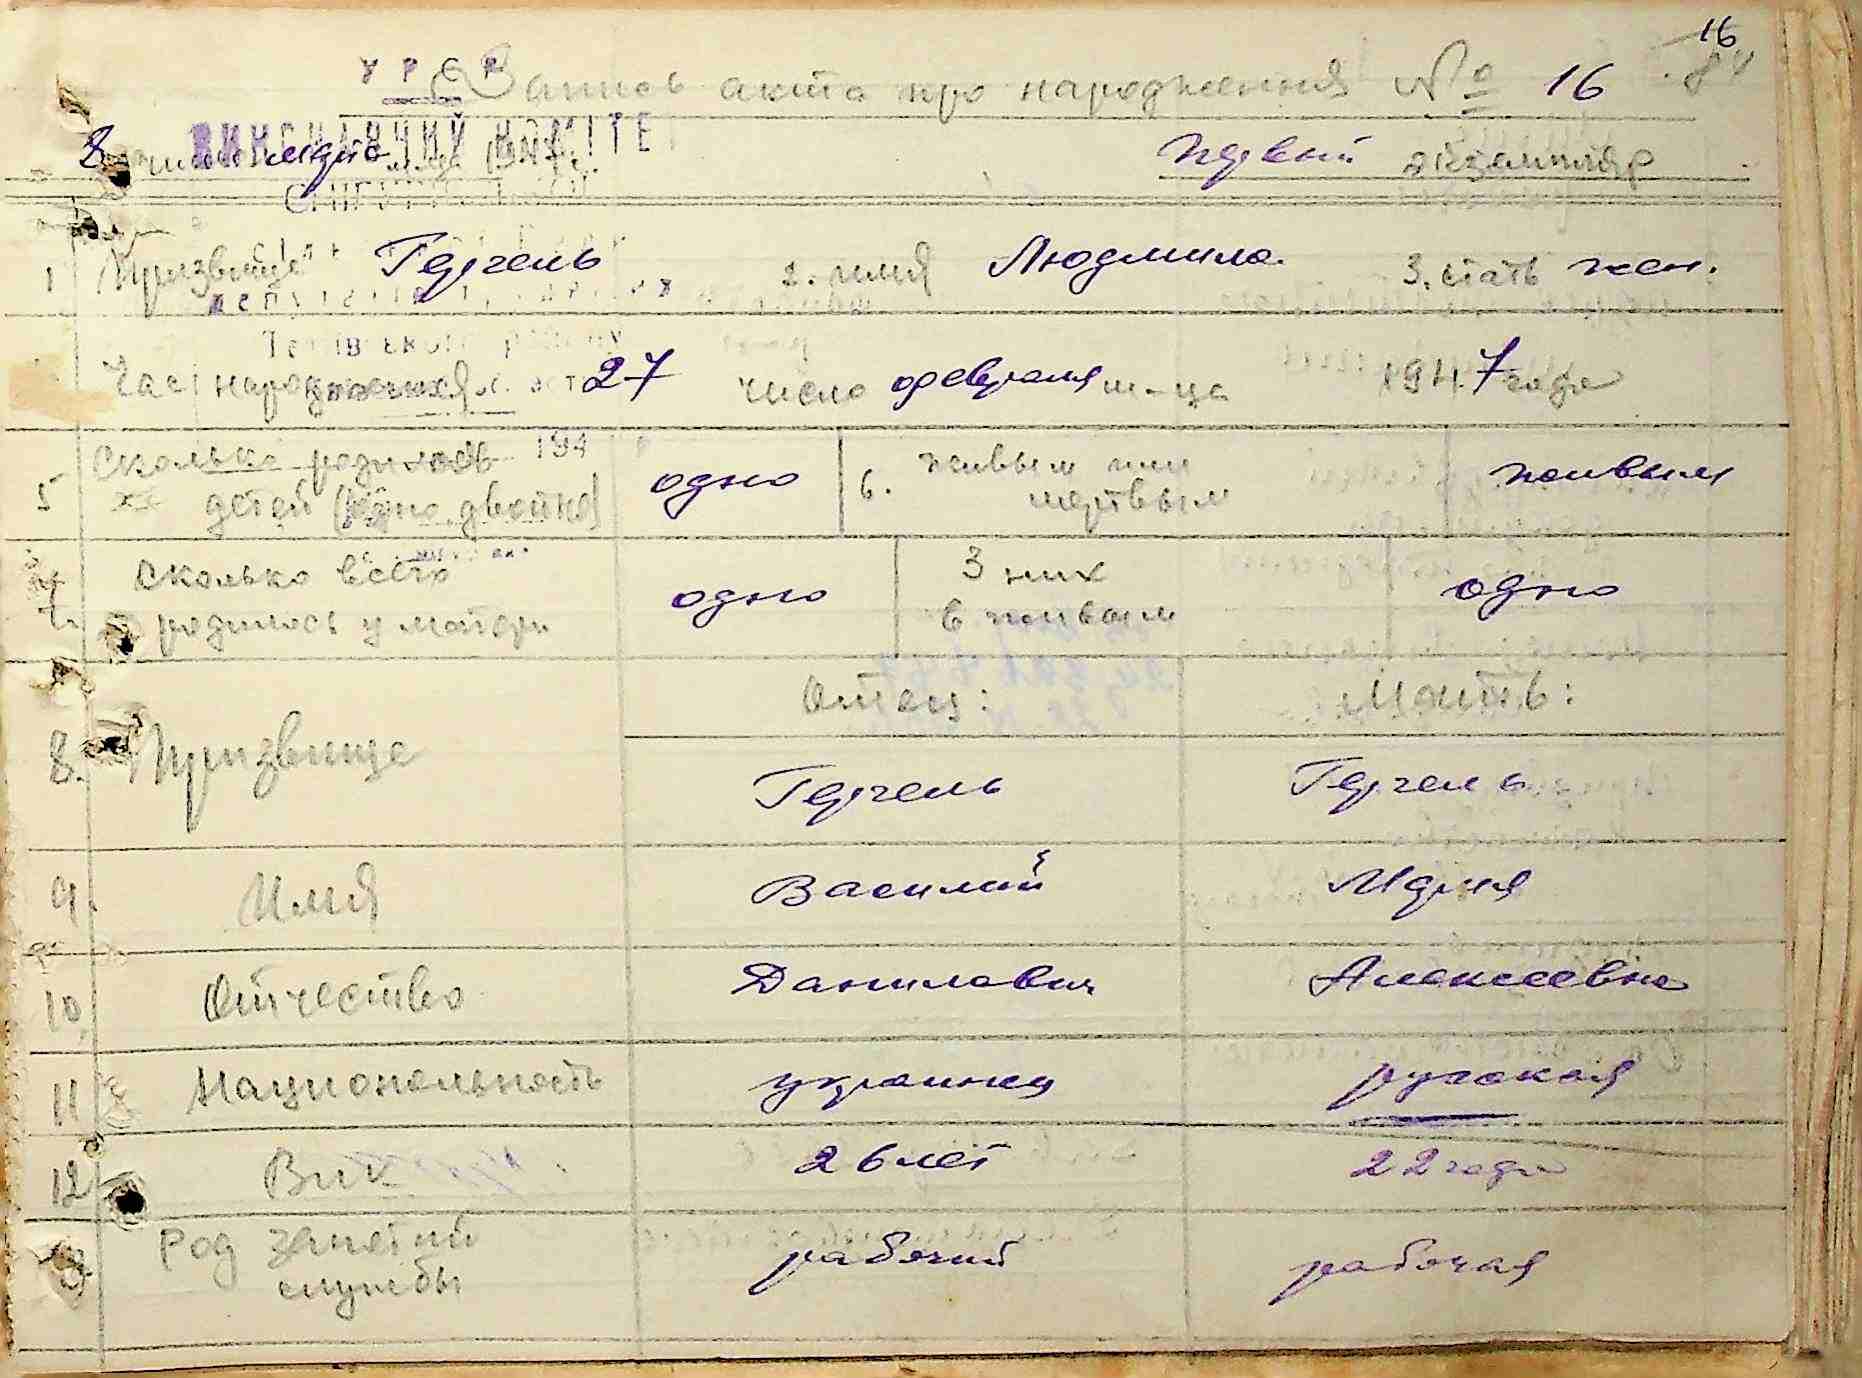 16
84
УРСР
Запись акта про народження № 16
ВИКОНАВЧИЙ КОМІТЕТ
8 марта Первый экземпляр
1 Призвище Герчель 2. имя Людмила. 3. стать жен.
Час народження 27 число февраля м-ца 1947 года
5 Сколько родилось 194
детей (одно, двойня) одно 6. живым или мертвым живым
7. Сколько всего
родилось у матери одно З них в живым одно
Отец: Мать:
8. Призвище Герчель Герчель
9. Имя Василий Мария
10. Отчество Данилович Алексеевна
11 Национальность украинец русская
12 Вик 26 лет 22 года
13 Род занятий
службы рабочий рабочая